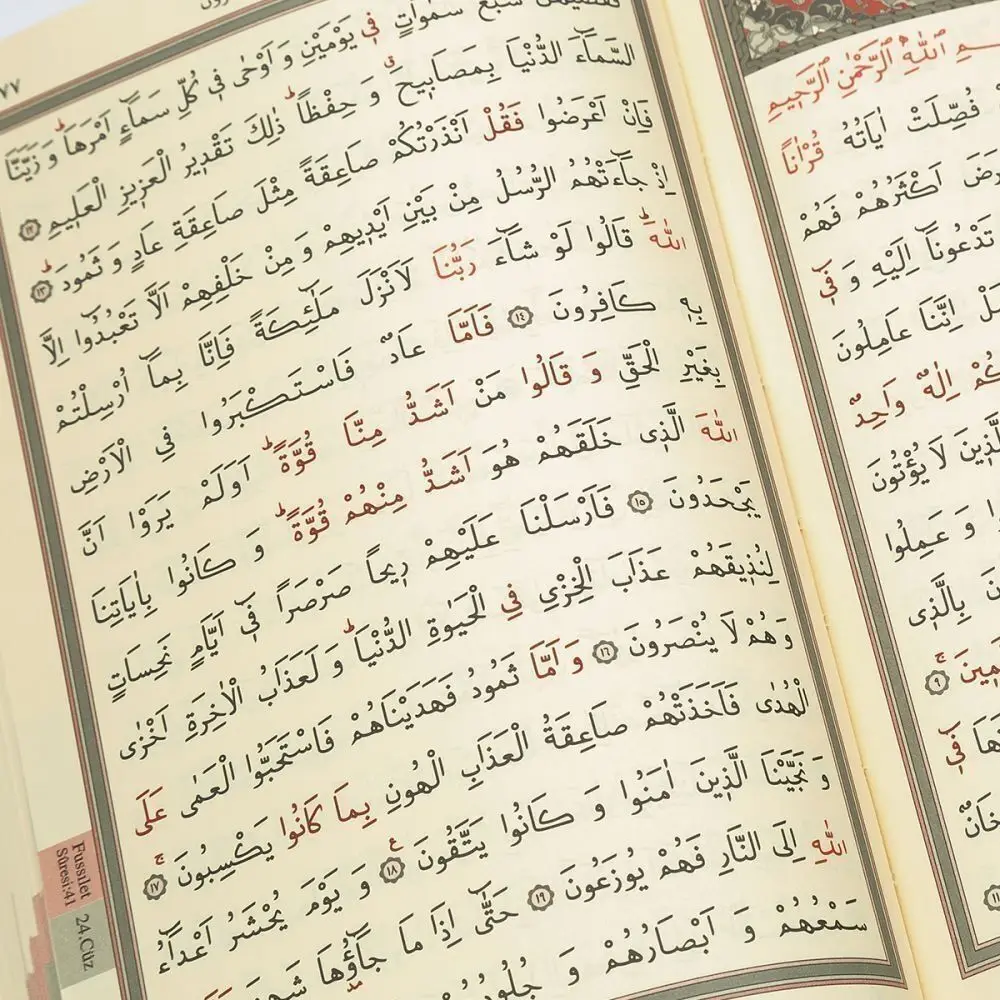 اللّٰهِ الرَّحْمٰنِ الرَّحِيمِ
فُصِّلَتْ اٰيَاتُهُ قُرْاٰناً
اَكْثَرُهُمْ فَهُمْ
تَدْعُونَٓا اِلَيْهِ وَ ف۪ٓي
اِنَّنَا عَامِلُونَ
اِلٰهٌ وَاحِدٌ
لَا يُؤْتُونَ
وَ عَمِلُوا
بِالَّذ۪ي
٩
ف۪ٓي
١١
٧٧
سَبْعَ سَمٰوَاتٍ ف۪ي يَوْمَيْنِ وَ اَوْحٰى ف۪ي كُلِّ سَمَٓاءٍ اَمْرَهَاۜ وَ زَيَّنَّا
السَّمَٓاءَ الدُّنْيَا بِمَصَاب۪يحَۗ وَ حِفْظاًۜ ذٰلِكَ تَقْد۪يرُ الْعَز۪يزِ الْعَل۪يمِ ١٢
فَاِنْ اَعْرَضُوا فَقُلْ اَنْذَرْتُكُمْ صَاعِقَةً مِثْلَ صَاعِقَةِ عَادٍ وَ ثَمُودَۜ ١٣
اِذْ جَٓاءَتْهُمُ الرُّسُلُ مِنْ بَيْنِ اَيْد۪يهِمْ وَ مِنْ خَلْفِهِمْ اَلَّا تَعْبُدُٓوا اِلَّا
اللّٰهَۜ قَالُوا لَوْ شَٓاءَ رَبُّنَا لَاَنْزَلَ مَلٰٓئِكَةً فَاِنَّا بِمَٓا اُرْسِلْتُمْ
بِه۪ كَافِرُونَ ١٤ فَاَمَّا عَادٌ فَاسْتَكْبَرُوا فِي الْاَرْضِ
بِغَيْرِ الْحَقِّ وَ قَالُوا مَنْ اَشَدُّ مِنَّا قُوَّةًۜ اَوَلَمْ يَرَوْا اَنَّ
اللّٰهَ الَّذ۪ي خَلَقَهُمْ هُوَ اَشَدُّ مِنْهُمْ قُوَّةًۜ وَ كَانُوا بِاٰيَاتِنَا
يَجْحَدُونَ ١٥ فَاَرْسَلْنَا عَلَيْهِمْ ر۪يحاً صَرْصَراً ف۪ٓي اَيَّامٍ نَحِسَاتٍ
لِنُذ۪يقَهُمْ عَذَابَ الْخِزْيِ فِي الْحَيٰوةِ الدُّنْيَاۜ وَ لَعَذَابُ الْاٰخِرَةِ اَخْزٰى
وَ هُمْ لَا يُنْصَرُونَ ١٦ وَ اَمَّا ثَمُودُ فَهَدَيْنَاهُمْ فَاسْتَحَبُّوا الْعَمٰى عَلَى
الْهُدٰى فَاَخَذَتْهُمْ صَاعِقَةُ الْعَذَابِ الْهُونِ بِمَا كَانُوا يَكْسِبُونَۚ ١٧
وَ نَجَّيْنَا الَّذ۪ينَ اٰمَنُوا وَ كَانُوا يَتَّقُونَ۟ ١٨ وَ يَوْمَ يُحْشَرُ اَعْدَٓاءُ
اللّٰهِ اِلَى النَّارِ فَهُمْ يُوزَعُونَ ١٩ حَتّٰٓى اِذَا مَا جَٓاؤُ۫هَا
سَمْعُهُمْ وَ اَبْصَارُهُمْ وَ
Fussılet
Sûresi:41
24.Cüz